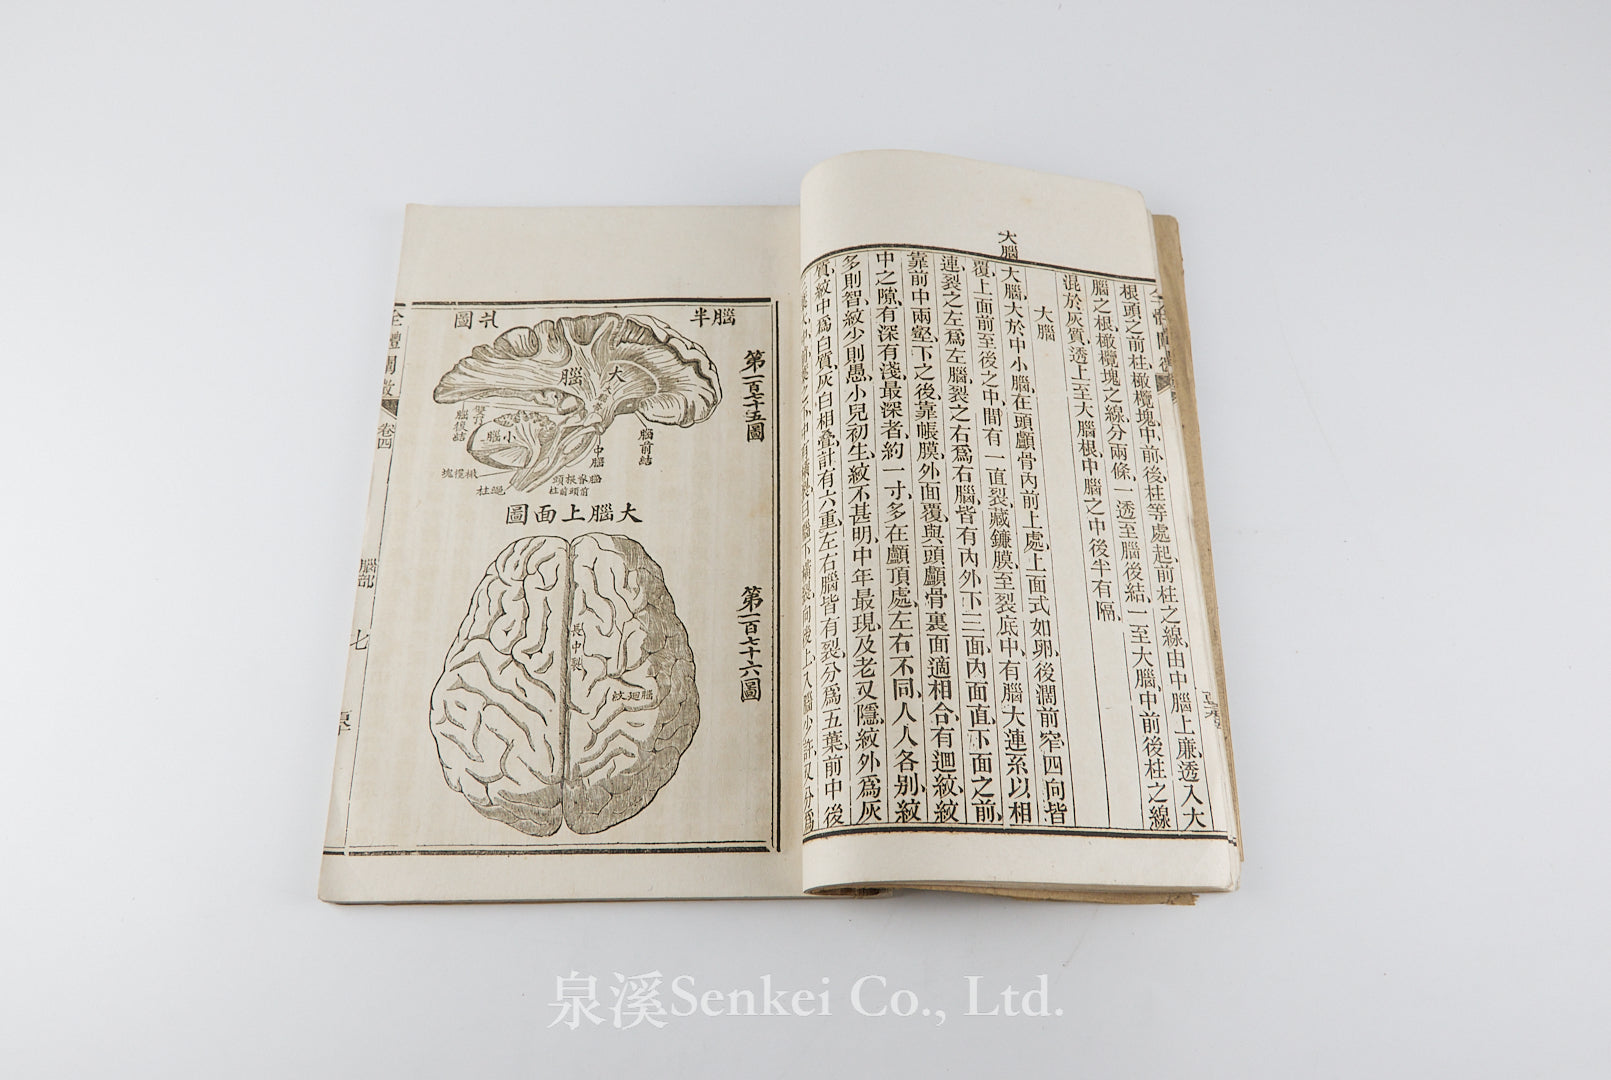 大腦
根頭之前柱、橄欖塊中前後柱等處起、前柱之線、由中腦上廉透入大
腦之根、橄欖塊之線、分兩條、一透至腦後結、一至大腦、中前後柱之線
混於灰質、透上至大腦根、中腦之中後半有隔、
大腦
大腦、大於中小腦、在頭顱骨內前上處、上面式如卵、後濶前窄、四向皆
覆、上面前至後之中、間有一直裂、藏鐮膜、至裂底中、有腦大連系、以相
連、裂之左爲左腦、裂之右爲右腦、皆有內外下三面、內面直、下面之前、
靠前中兩壑、下之後、靠帳膜、外面覆、與頭顱骨裏面適相合、有迴紋、紋
中之隙、有深有淺、最深者、約一寸、多在顱頂處、左右不同、人人各別、紋
多則智、紋少則愚、小兒初生、紋不甚明、中年最現、及老又隱、紋外爲灰
質、紋中爲白質、灰白相疊、計有六重、左右腦皆有裂、分爲五葉、前中後
全體闡微
卷四
腦部
七
腦半
圖
第一百七十五圖
大腦
小腦
中腦
腦前結
腦後結
橄欖塊
繩柱
大腦上面圖
第一百七十六圖
長中裂
腦迴紋
泉溪Senkei Co., Ltd.